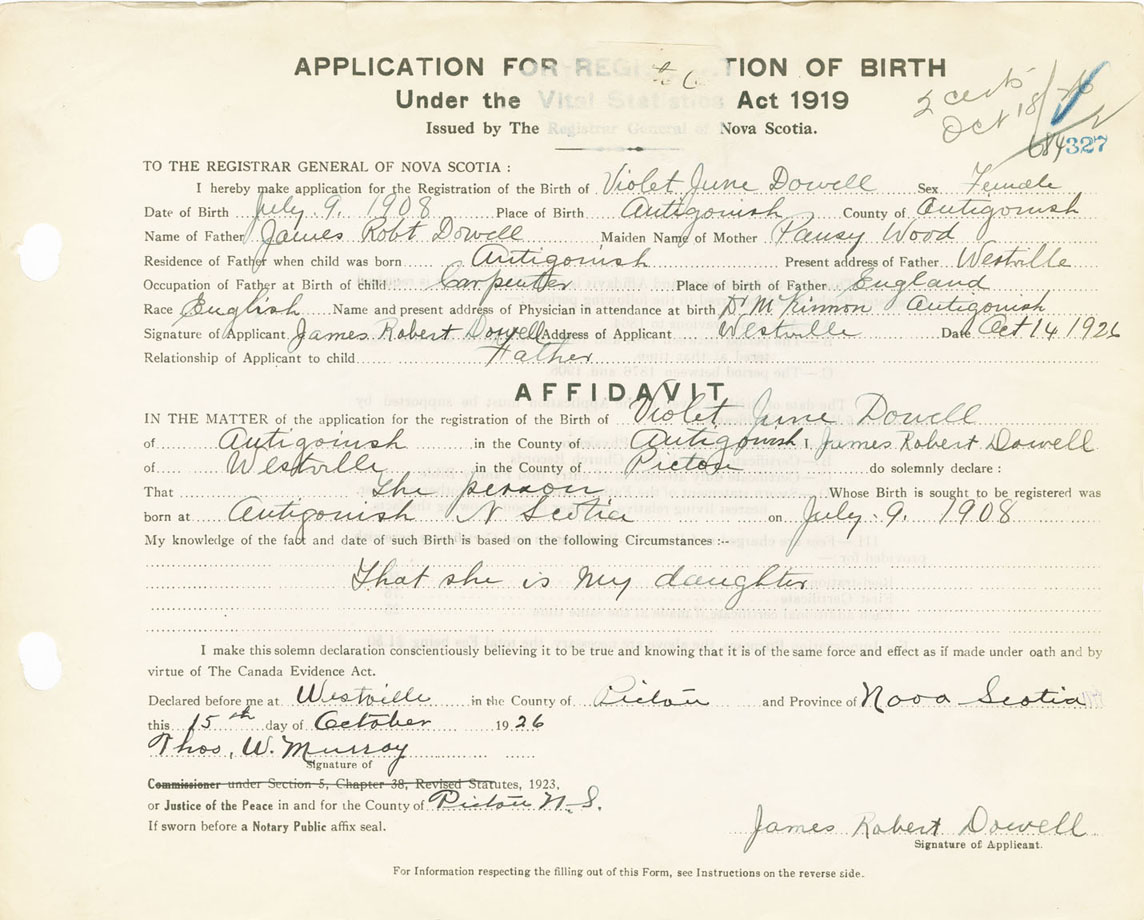 APPLICATION FOR REG TION OF BIRTH
Under the Vital Statistics Act 1919
Issued by The Registrar General of Nova Scotia.
2 certs
Oct 18/26
684
327
TO THE REGISTRAR GENERAL OF NOVA SCOTIA :
I hereby make application for the Registration of the Birth of Violet June Dowell Sex Female
Date of Birth July 9, 1908 Place of Birth Antigonish County of Antigonish
Name of Father James Robt Dowell Maiden Name of Mother Pansy Wood
Residence of Father when child was born Antigonish Present address of Father Westville
Occupation of Father at Birth of child Carpenter Place of birth of Father England
Race English Name and present address of Physician in attendance at birth Dr McKinnon Antigonish
Signature of Applicant James Robert Dowell Address of Applicant Westville Date Oct 14 1926
Relationship of Applicant to child Father
AFFIDAVIT
IN THE MATTER of the application for the registration of the Birth of Violet June Dowell
of Antigoinsh in the County of Antigonish I, James Robert Dowell
of Westville in the County of Pictou do solemnly declare :
That The person Whose Birth is sought to be registered was
born at Antigonish N Scotia on July 9, 1908
My knowledge of the fact and date of such Birth is based on the following Circumstances :--
That she is my daughter
I make this solemn declaration conscientiously believing it to be true and knowing that it is of the same force and effect as if made under oath and by
virtue of The Canada Evidence Act.
Declared before me at Westville in the County of Pictou and Province of Nova Scotia
this 15th day of October 1926
Thos. W. Murray
Signature of
Commissioner under Section 5, Chapter 38, Revised Statutes, 1923,
or Justice of the Peace in and for the County of Pictou N.S.
If sworn before a Notary Public affix seal.
James Robert Dowell
Signature of Applicant.
For Information respecting the filling out of this Form, see Instructions on the reverse side.